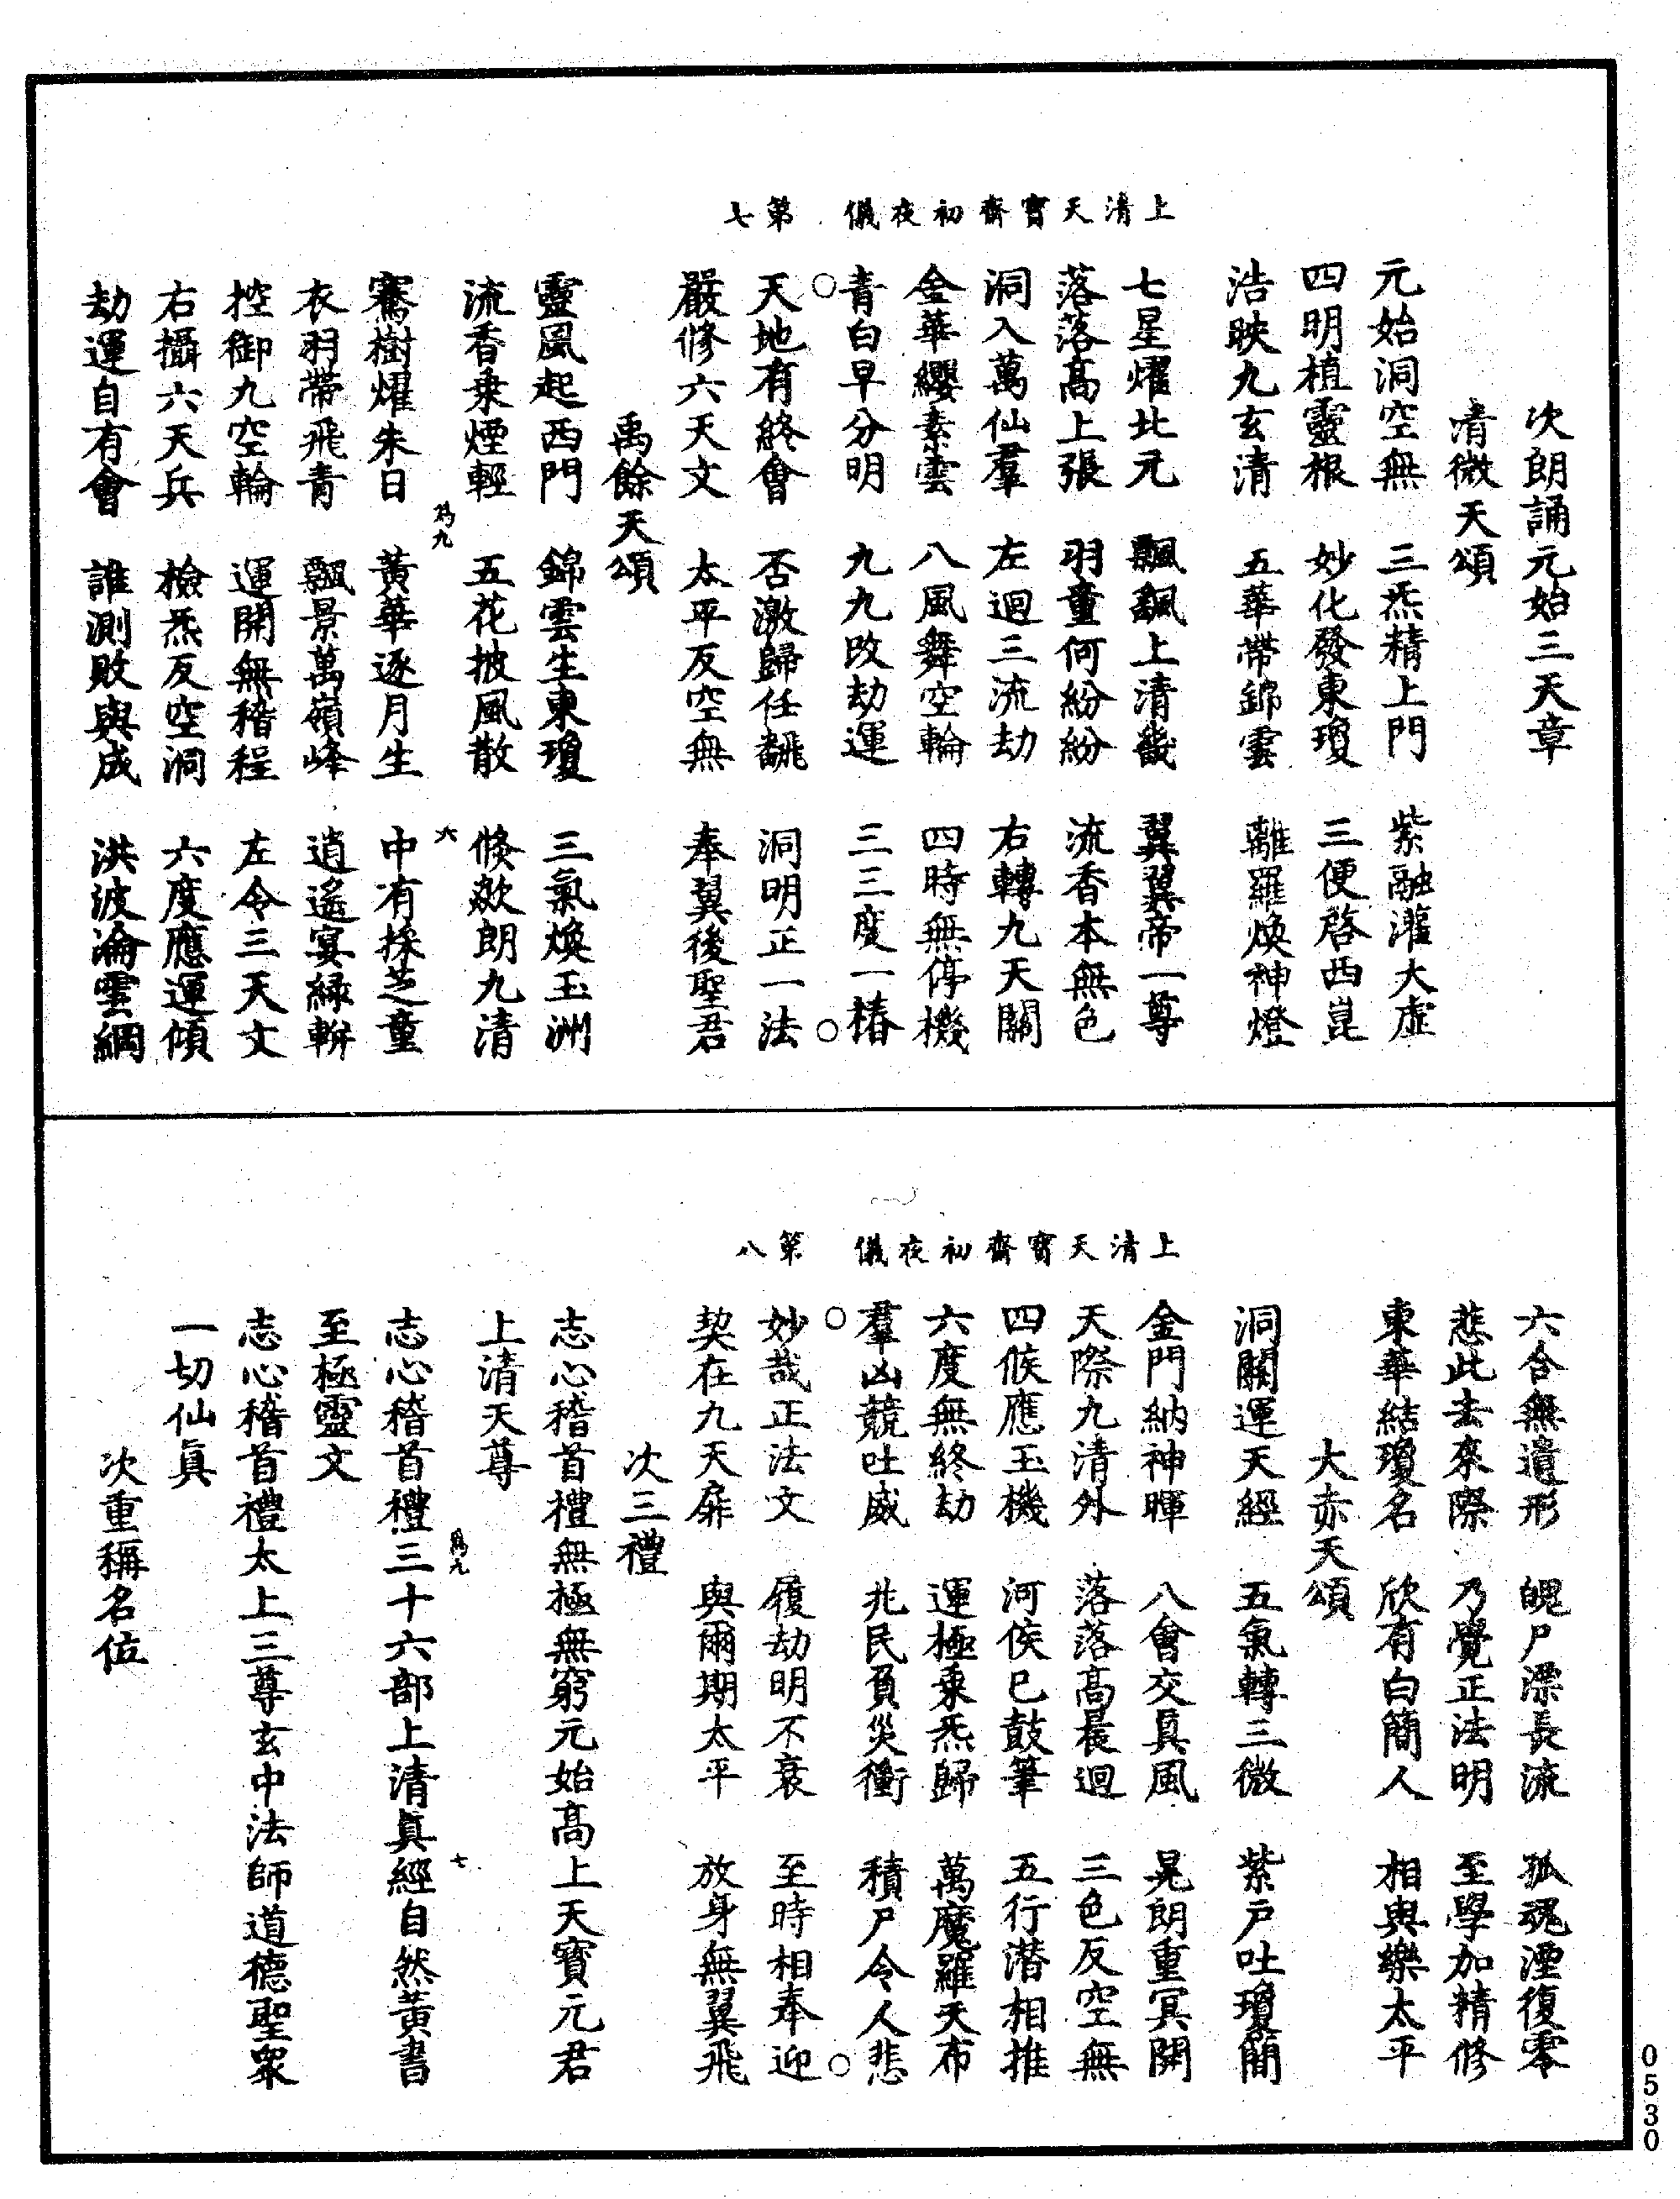 上清天寶齋初夜儀　第七
次朗誦元始三天章
清微天頌
元始洞空無　三炁精上門　紫融灌大虛
四明植靈根　妙化發東瓊　三便啓西崑
浩映九玄清　五華帶錦雲　離羅煥神燈
七星燿北元　飄飄上清畿　翼翼帝一尊
落落高上張　羽童何紛紛　流香本無色
洞入萬仙羣　左迴三流劫　右轉九天關
金華纓素雲　八風舞空輪　四時無停機
青白早分明　九九改劫運　三三度一椿
天地有終會　否激歸任飜　洞明正一法
嚴修六天文　太平反空無　奉翼後聖君
禹餘天頌
靈風起西門　錦雲生東瓊　三氣煥玉洲
流香乗煙輕　五花披風散　倐欻朗九清
為九　六
騫樹燿朱日　黃華逐月生　中有採芝童
衣羽帶飛青　飄景萬嶺峰　逍遙宴綠軿
控御九空輪　運開無稽程　左令三天文
右攝六天兵　檢炁反空洞　六度應運傾
劫運自有會　誰測敗與成　洪波淪雲綱
上清天寶齋初夜儀　第八
六合無遺形　魄尸漂長流　孤魂湮復零
悲此去來際　乃覺正法明　至學加精修
東華結瓊名　欣有白簡人　相與樂太平
大赤天頌
洞關運天經　五氣轉三微　紫戸吐瓊簡
金門納神暉　八會交真風　晃朗重冥開
天際九清外　落落高晨迴　三色反空無
四候應玉機　河侯已鼓筆　五行潛相推
六度無終劫　運極乗炁歸　萬魔羅天布
羣凶競吐威　兆民負災衝　積尸令人悲
妙哉正法文　履劫明不衰　至時相奉迎
契在九天扉　與爾期太平　放身無翼飛
次三禮
志心稽首禮無極無窮元始高上天寶元君
上清天尊
為九　七
志心稽首禮三十六部上清真經自然黃書
至極靈文
志心稽首禮太上三尊玄中法師道德聖衆
一切仙真
次重稱名位
0530